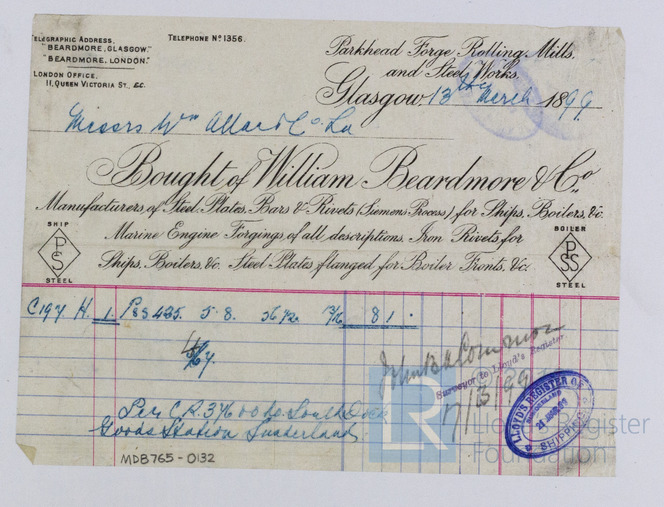 TELEGRAPHIC ADDRESS,
"BEARDMORE, GLASGOW."
"BEARDMORE, LONDON."
LONDON OFFICE,
11, QUEEN VICTORIA ST., &C.
TELEPHONE No 1356.
Parkhead Forge Rolling Mills,
and Steel Works,
Glasgow 13th March 1899
Messrs Wm Allan & Co Ld
Bought of William Beardmore & Co.
Manufacturers of Steel Plates, Bars & Rivets (Siemens Process) for Ships, Boilers, &c.
Marine Engine Forgings of all descriptions, Iron Rivets for
Ships, Boilers, &c. Steel Plates flanged for Boiler Fronts, &c.
SHIP
PSS
STEEL
BOILER
PSS
STEEL
C197 H. 1 5. 8. 81.
Surveyor to Lloyd's Register
17/3/99
South Dock
Goods Station Sunderland
LLOYD'S REGISTER OF
SHIPPING
SUNDERLAND
MDB765-0132
LR
Lloyd's Register
Foundation